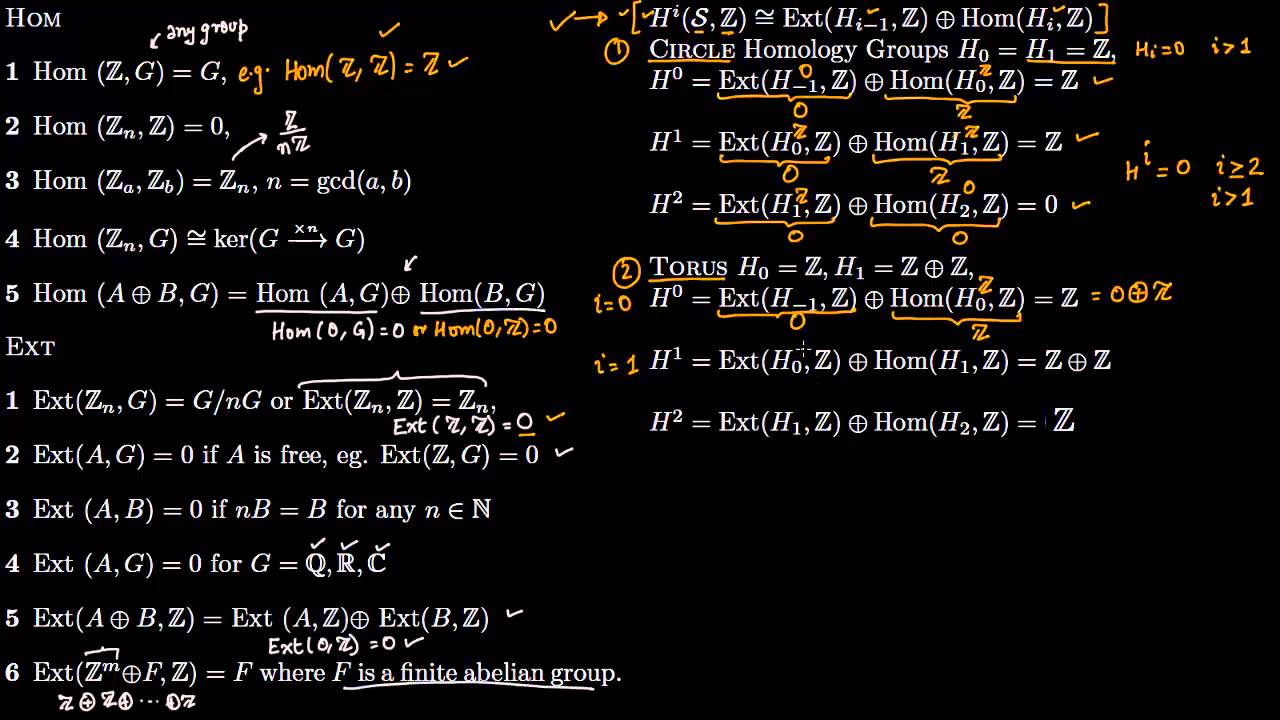 HOM
any group
1 Hom (ℤ, G) = G, e.g. Hom(ℤ, ℤ) = ℤ ✓
2 Hom (ℤₙ, ℤ) = 0,
ℤ/nℤ
3 Hom (ℤₐ, ℤ_b) = ℤₙ, n = gcd(a, b)
4 Hom (ℤₙ, G) ≅ ker(G —×n→ G)
5 Hom (A ⊕ B, G) = Hom (A, G)⊕ Hom(B, G)
Hom(0, G) = 0 or Hom(0, ℤ) = 0
EXT
1 Ext(ℤₙ, G) = G/nG or Ext(ℤₙ, ℤ) = ℤₙ,
Ext(ℤ, ℤ) = 0 ✓
2 Ext(A, G) = 0 if A is free, eg. Ext(ℤ, G) = 0 ✓
3 Ext (A, B) = 0 if nB = B for any n ∈ ℕ
4 Ext (A, G) = 0 for G = ℚ, ℝ, ℂ
5 Ext(A ⊕ B, ℤ) = Ext (A, ℤ)⊕ Ext(B, ℤ) ✓
Ext(0, ℤ) = 0 ✓
6 Ext(ℤᵐ⊕F, ℤ) = F where F is a finite abelian group.
ℤ ⊕ ℤ ⊕ ··· ⊕ ℤ
✓ → ✓ [ Hⁱ(S, ℤ) ≅ Ext(Hᵢ₋₁, ℤ) ⊕ Hom(Hᵢ, ℤ) ]
① CIRCLE Homology Groups H₀ = H₁ = ℤ, Hᵢ = 0 i > 1
H⁰ = Ext(H₋₁, ℤ) ⊕ Hom(H₀, ℤ) = ℤ ✓
0 ℤ
H¹ = Ext(H₀, ℤ) ⊕ Hom(H₁, ℤ) = ℤ ✓
0 ℤ
Hⁱ = 0 i ≥ 2
i > 1
H² = Ext(H₁, ℤ) ⊕ Hom(H₂, ℤ) = 0 ✓
0 0
② TORUS H₀ = ℤ, H₁ = ℤ ⊕ ℤ,
i=0 H⁰ = Ext(H₋₁, ℤ) ⊕ Hom(H₀, ℤ) = ℤ = 0 ⊕ ℤ
0 ℤ
i=1 H¹ = Ext(H₀, ℤ) ⊕ Hom(H₁, ℤ) = ℤ ⊕ ℤ
H² = Ext(H₁, ℤ) ⊕ Hom(H₂, ℤ) = ℤ